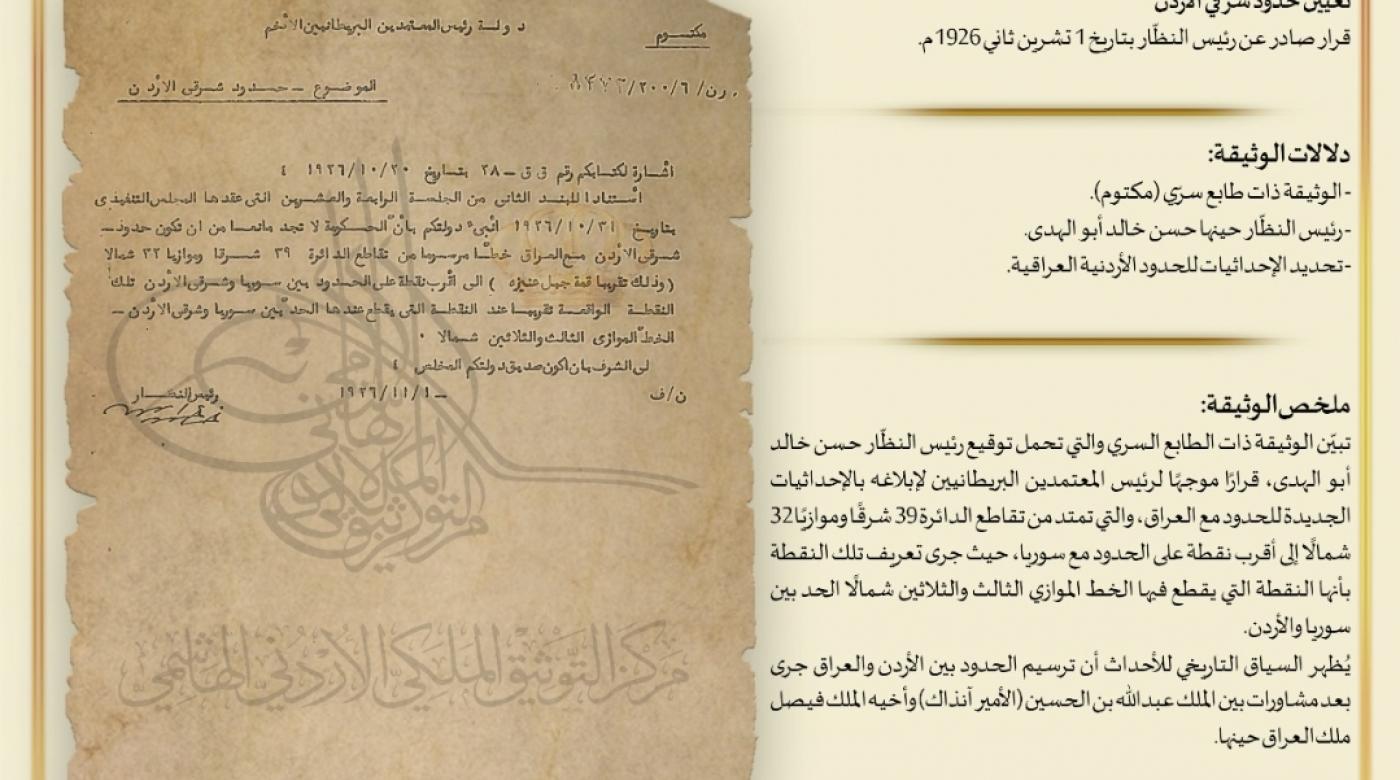 تعيين حدود شرقي الأردن
قرار صادر عن رئيس النظّار بتاريخ 1 تشرين ثاني 1926م.
دلالات الوثيقة:
- الوثيقة ذات طابع سرّي (مكتوم).
-رئيس النظّار حينها حسن خالد أبو الهدى.
-تحديد الإحداثيات للحدود الأردنية العراقية.
ملخص الوثيقة:
تبيّن الوثيقة ذات الطابع السري والتي تحمل توقيع رئيس النظّار حسن خالد
أبو الهدى، قرارًا موجهًا لرئيس المعتمدين البريطانيين لإبلاغه بالإحداثيات
الجديدة للحدود مع العراق، والتي تمتد من تقاطع الدائرة 39 شرقًا وموازيًا 32
شمالًا إلى أقرب نقطة على الحدود مع سوريا، حيث جرى تعريف تلك النقطة
بأنها النقطة التي يقطع فيها الخط الموازي الثالث والثلاثين شمالًا الحد بين
سوريا والأردن.
يُظهر السياق التاريخي للأحداث أن ترسيم الحدود بين الأردن والعراق جرى
بعد مشاورات بين الملك عبدالله بن الحسين (الأمير آنذاك) وأخيه الملك فيصل
ملك العراق حينها.
مكتوم
دولة رئيس المعتمدين البريطانيين الأفخم
الموضوع – حدود شرقي الأردن
أشارة لكتابكم رقم ق ق – ٢٨ بتاريخ ٢٠/١٠/١٩٢٦
أستنادا للبند الثاني من الجلسة الرابعة والعشرين التي عقدها المجلس التنفيذي
بتاريخ ٣١/١٠/١٩٢٦ أنبيء دولتكم بأنّ الحكومة لا تجد مانعا من ان تكون حدود –
شرقي الأردن مع العراق خطّا مرسوما من تقاطع الدائرة ٣٩ شرقا وموازيا ٣٢ شمالا
(وذلك تقريبا قمة جبل عنيزه ) الى أقرب نقطة على الحدود بين سوريا وشرقي الأردن تلك
النقطة الواقعة تقريبا عند النقطة التي يقطع عندها الحدّ بين سوريا وشرقي الأردن –
الخطّ الموازي الثالث والثلاثين شمالا ٠
لي الشرف بان اكون صديق دولتكم المخلص
ن/ف
– ١/١١/١٩٢٦
رئيس النظار
مركز التوثيق الملكي الأردني الهاشمي